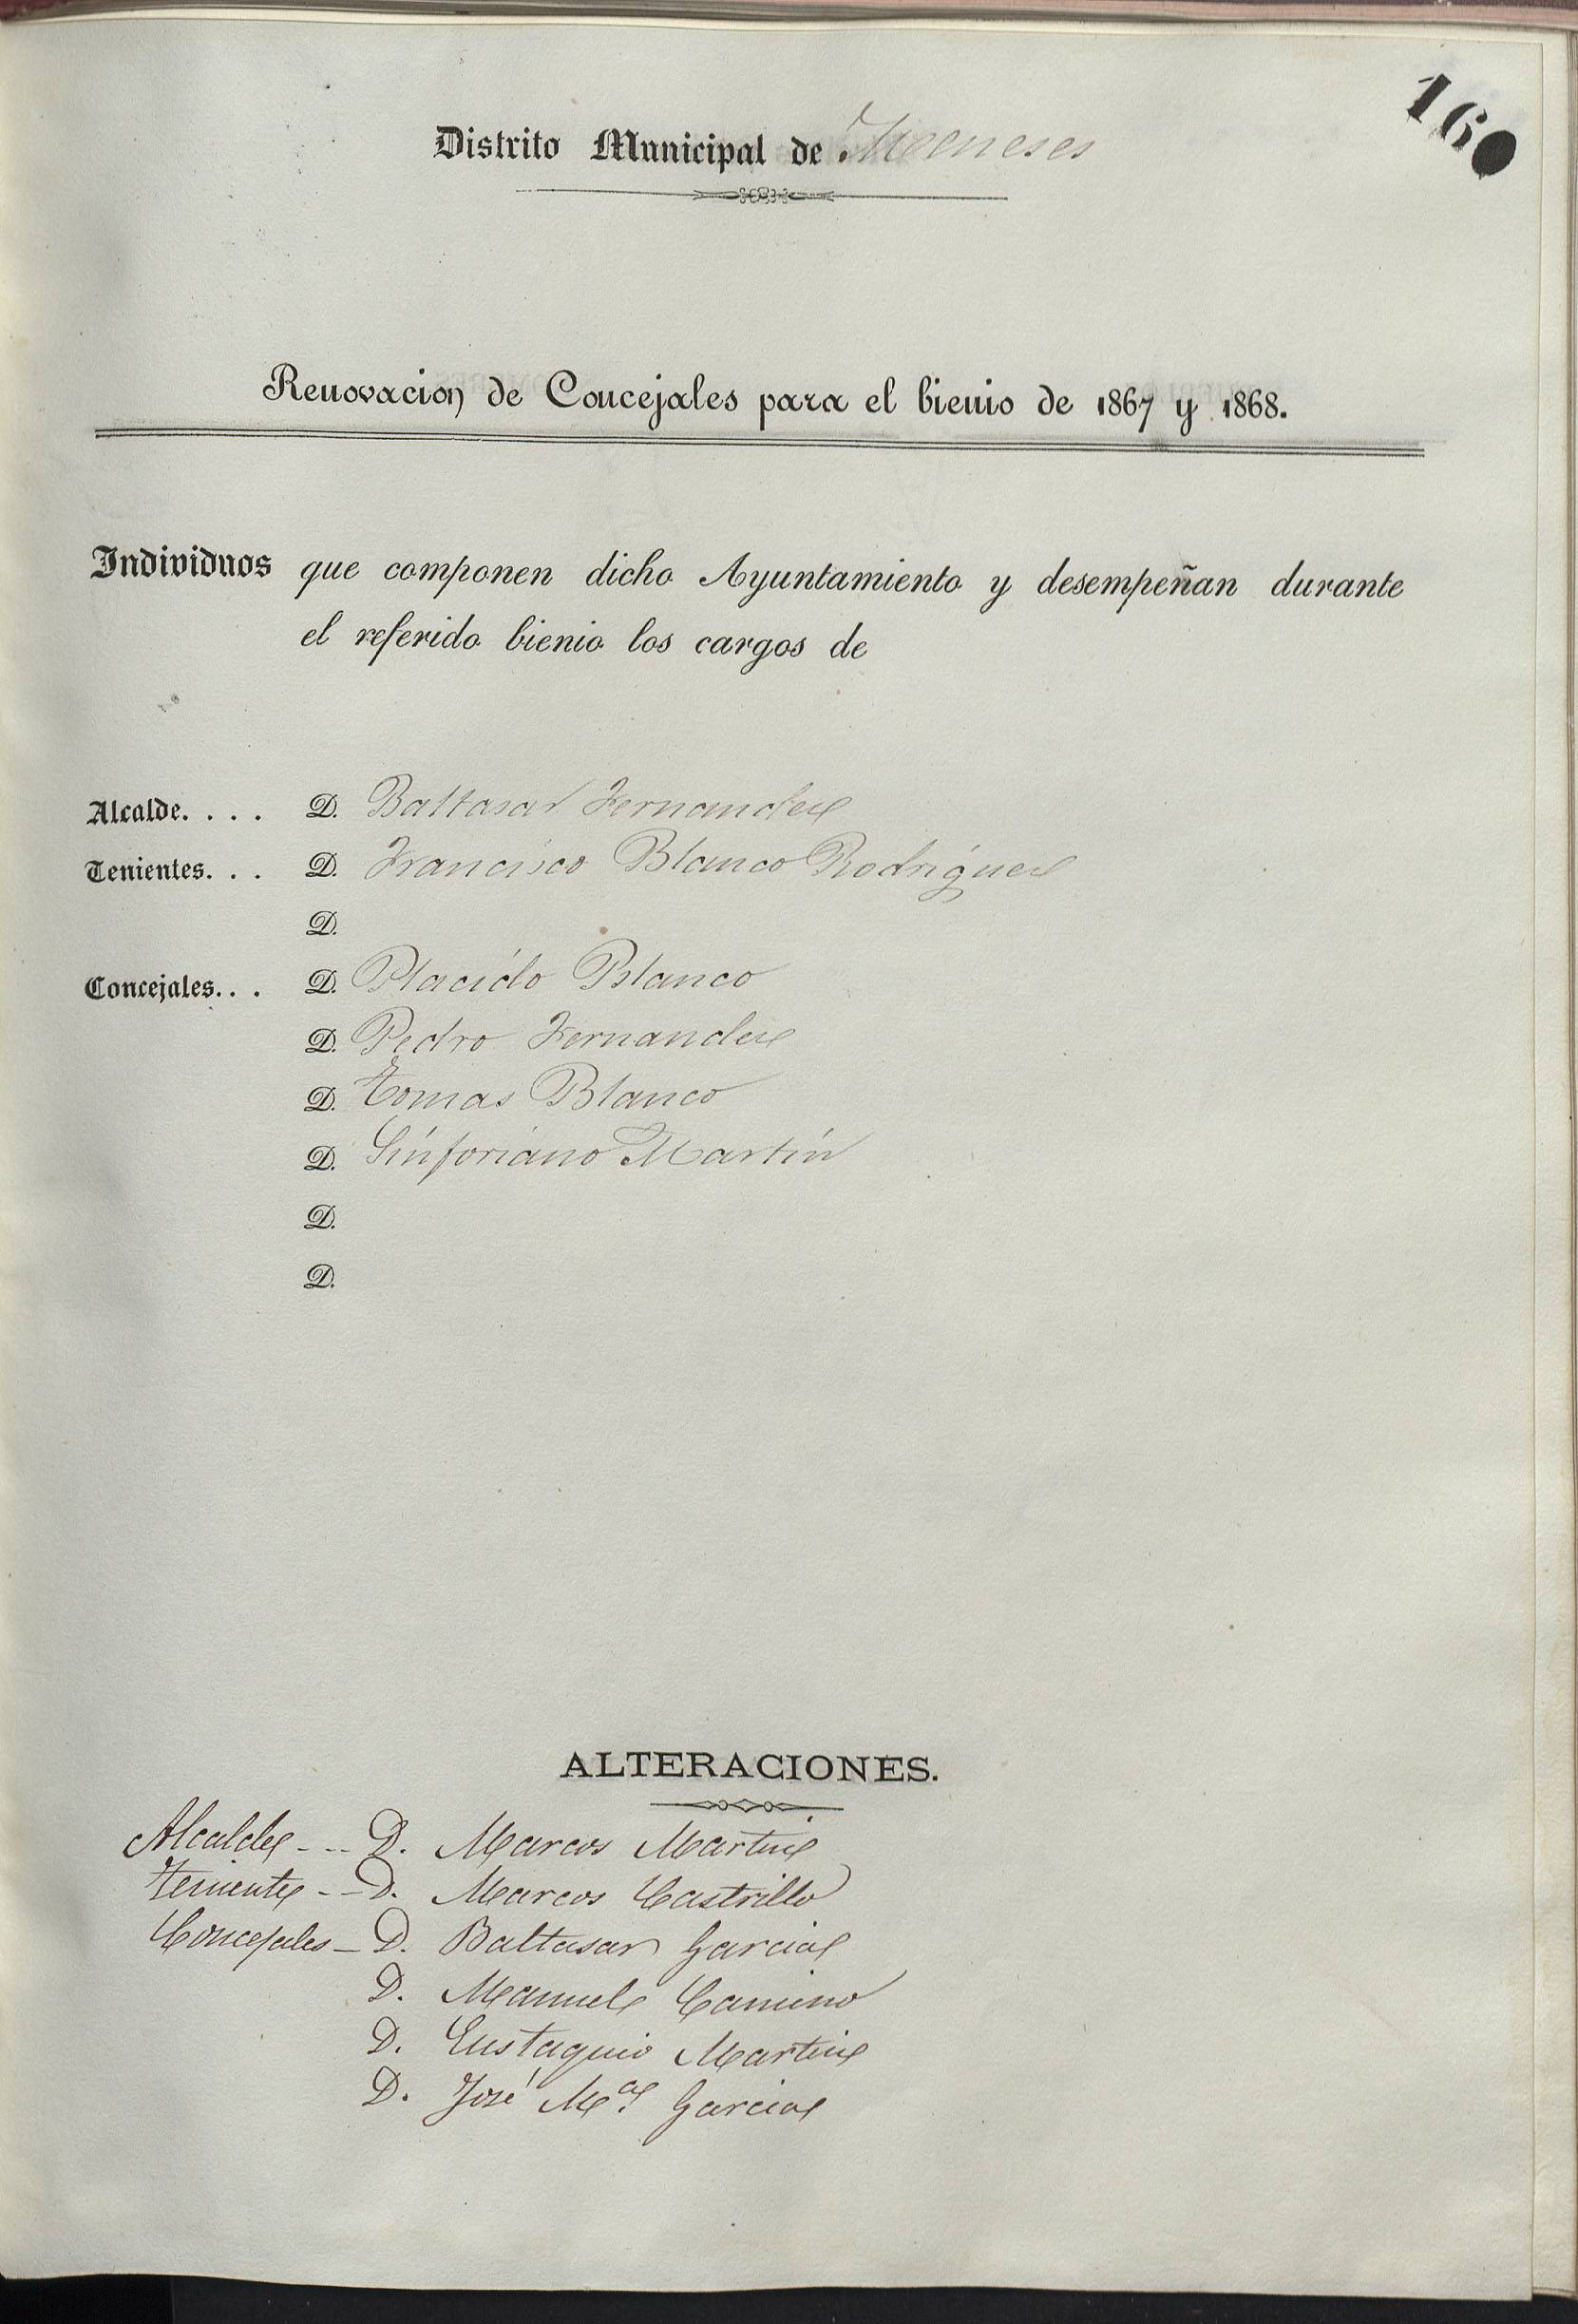 160
Distrito Municipal de Meneses
Renovacion de Concejales para el bienio de 1867 y 1868.
Individuos que componen dicho Ayuntamiento y desempeñan durante
el referido bienio los cargos de
Alcalde. . . . D. Baltasar Fernandez
Tenientes. . . D. Francisco Blanco Rodriguez
D.
Concejales. . . D. Placido Blanco
D. Pedro Fernandez
D. Tomas Blanco
D. Sinforiano Martin
D.
D.
ALTERACIONES.
Alcalde - - - D. Marcos Martin
Teniente - - D. Marcos Castrillo
Concejales - D. Baltasar Garcia
D. Manuel Camino
D. Eustaquio Martin
D. José Mª Garcia